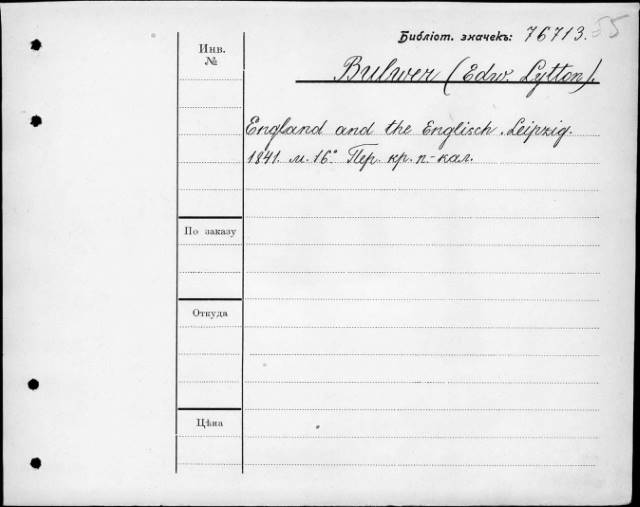 Библіот. значекъ: 76713.
Инв.
№
Bulwer (Edw. Lytton).
England and the Englisch. Leipzig.
1841. м. 16° Пер. кр. п.-кал.
По заказу
Откуда
Цѣна